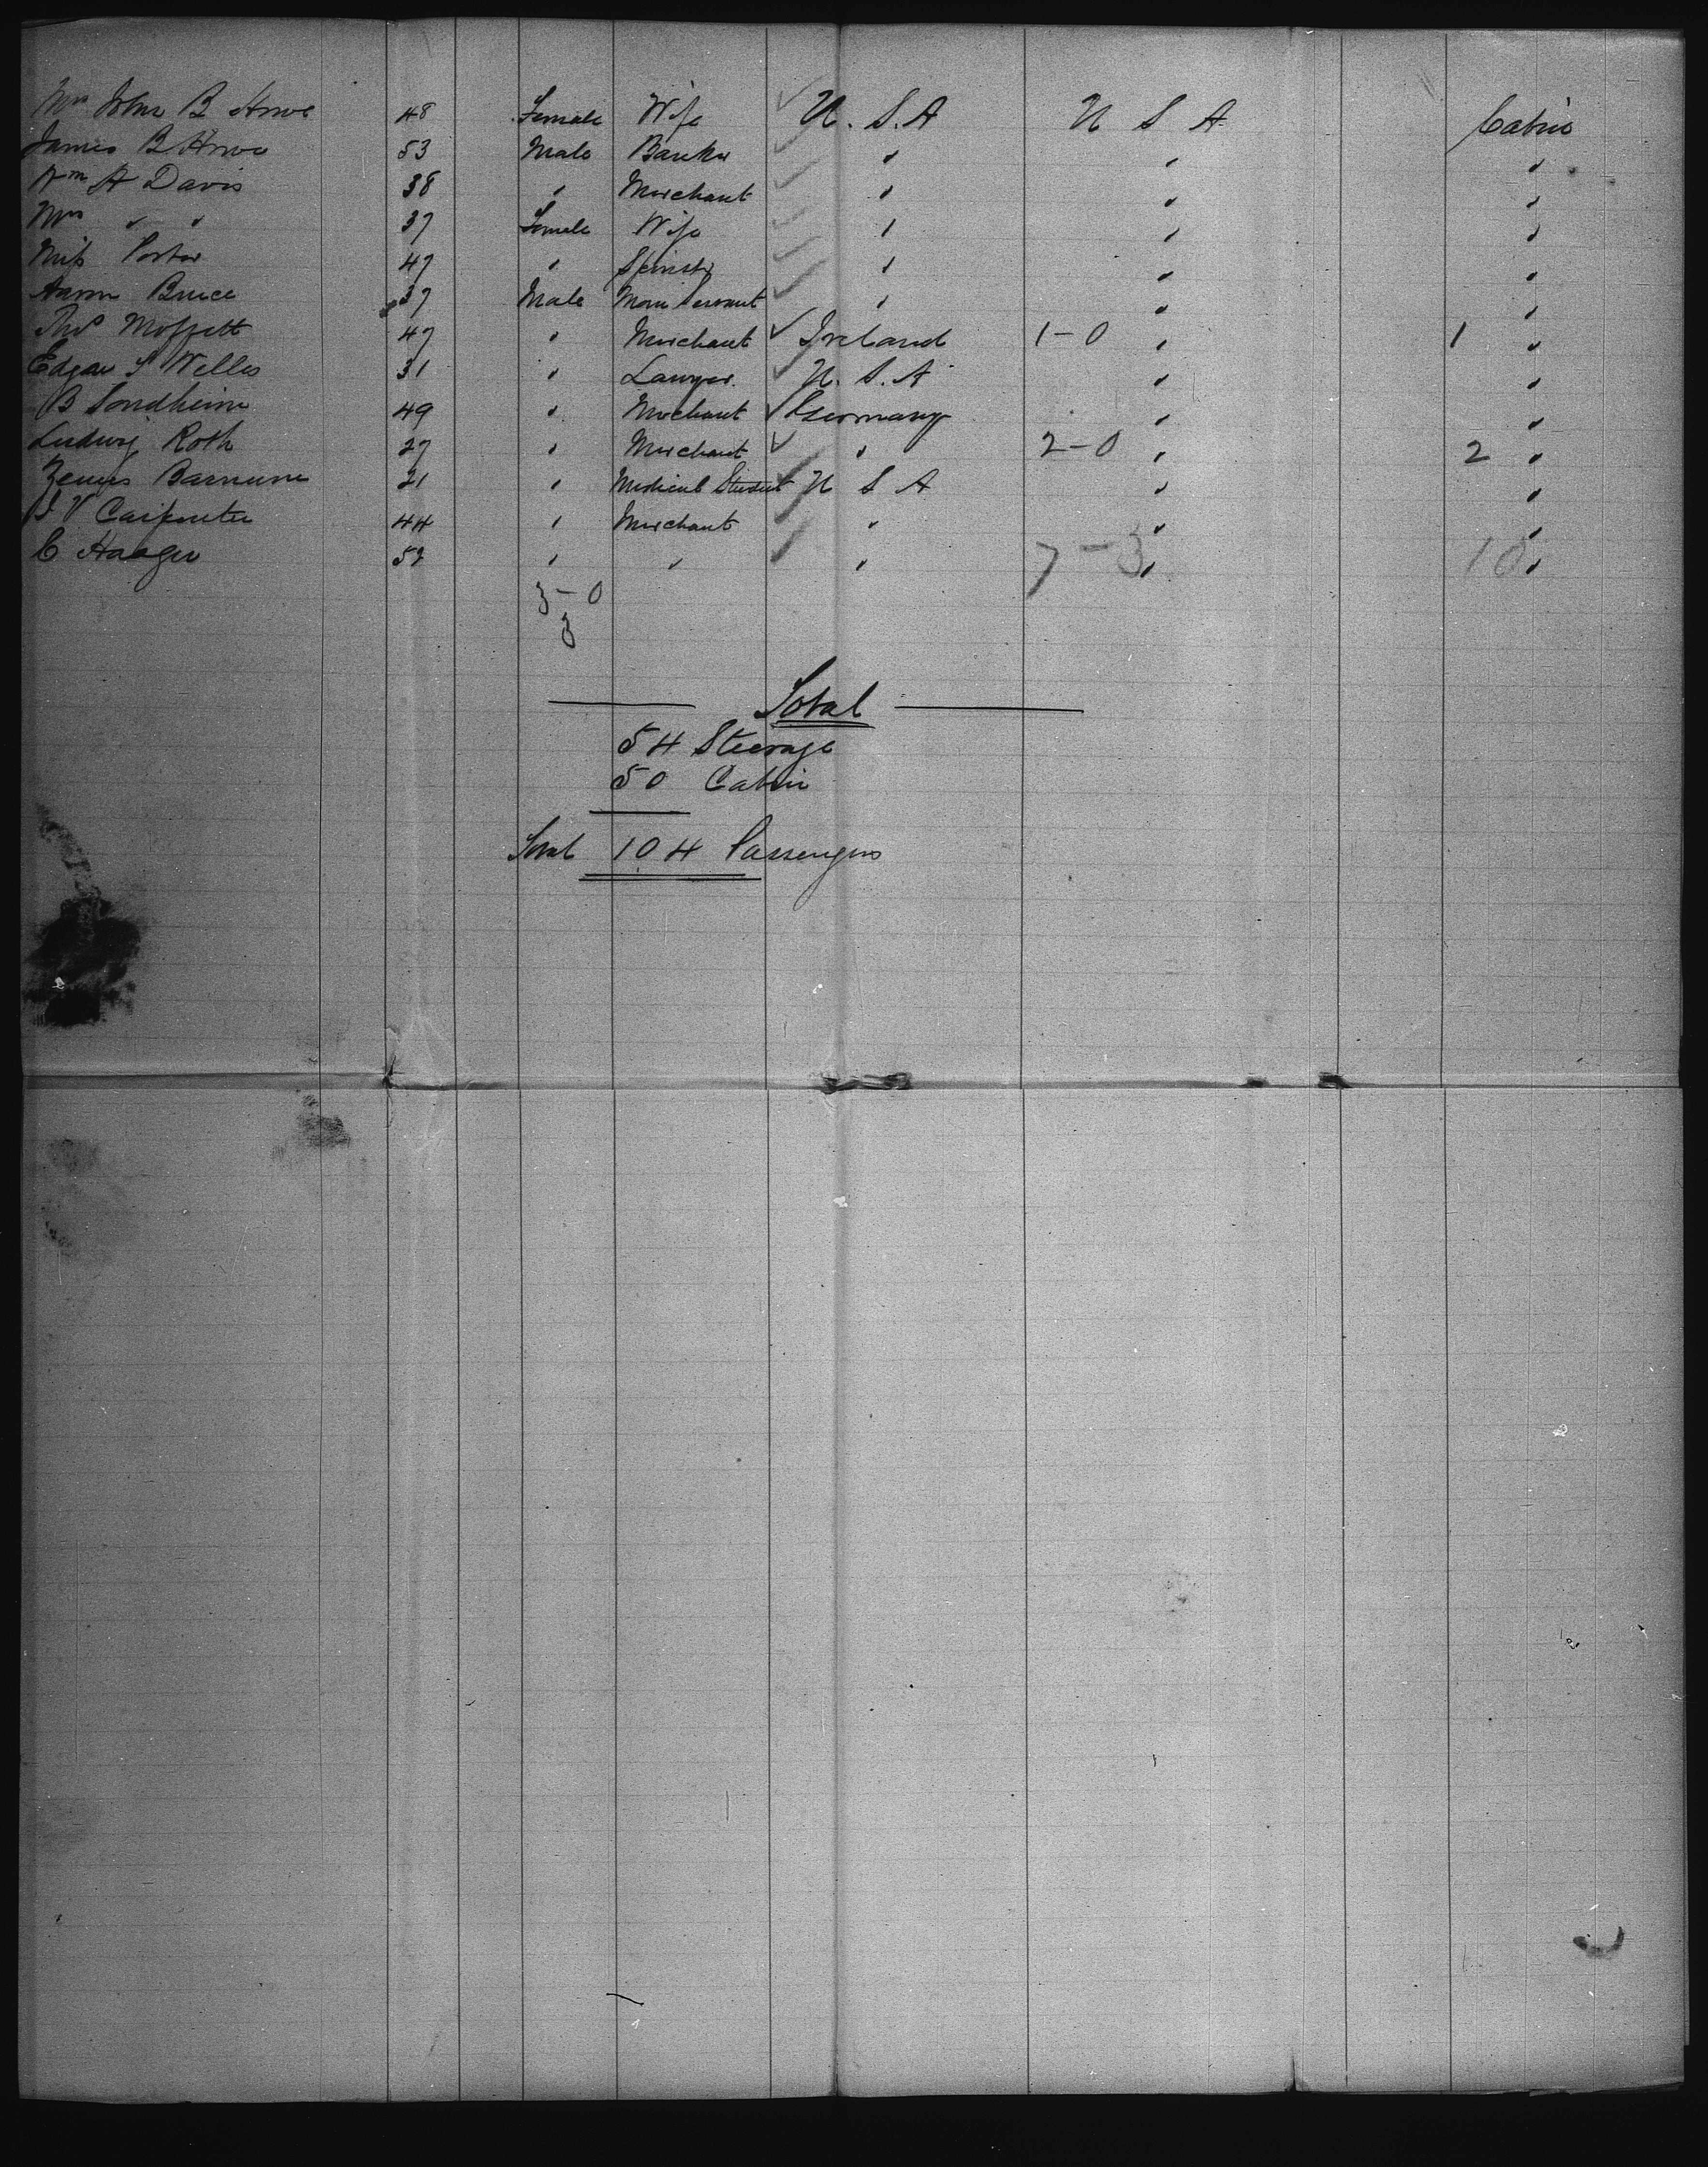 Mrs John B Howe 48 Female Wife U. S. A U S A Cabin
James B Howe 53 Male Banker " " "
Wm H Davis 38 " Merchant " " "
Mrs " " 37 Female Wife " " "
Miss Porter 47 " Spinster " " "
Aaron Bruce 37 Male Man Servant " " "
Thos Moffett 47 " Merchant Ireland 1-0 " 1 "
Edgar T Welles 31 " Lawyer. U. S. A " "
B Sondheim 49 " Merchant Germany " "
Ludwig Roth 27 " Merchant " 2-0 " 2 "
Zenus Barnum 21 " Medical Student U S A " "
J V Carpenter 44 " Merchant " " "
C Haager 52 " " " 7-3 " 10 "
3-0
3
Total
54 Steerage
50 Cabin
Total 104 Passengers